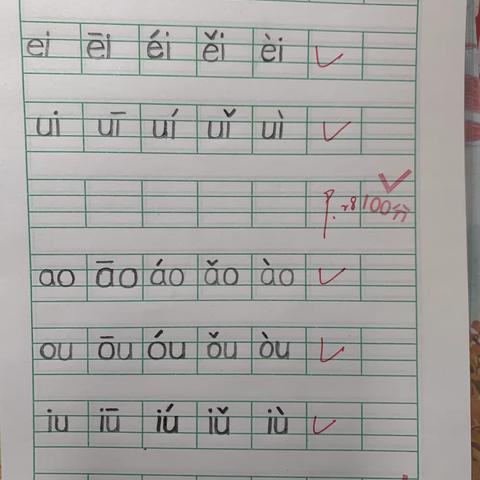 ei ēi éi ěi èi
ui uī uí uǐ uì
100分
ao āo áo ǎo ào
ou ōu óu ǒu òu
iu iū iú iǔ iù